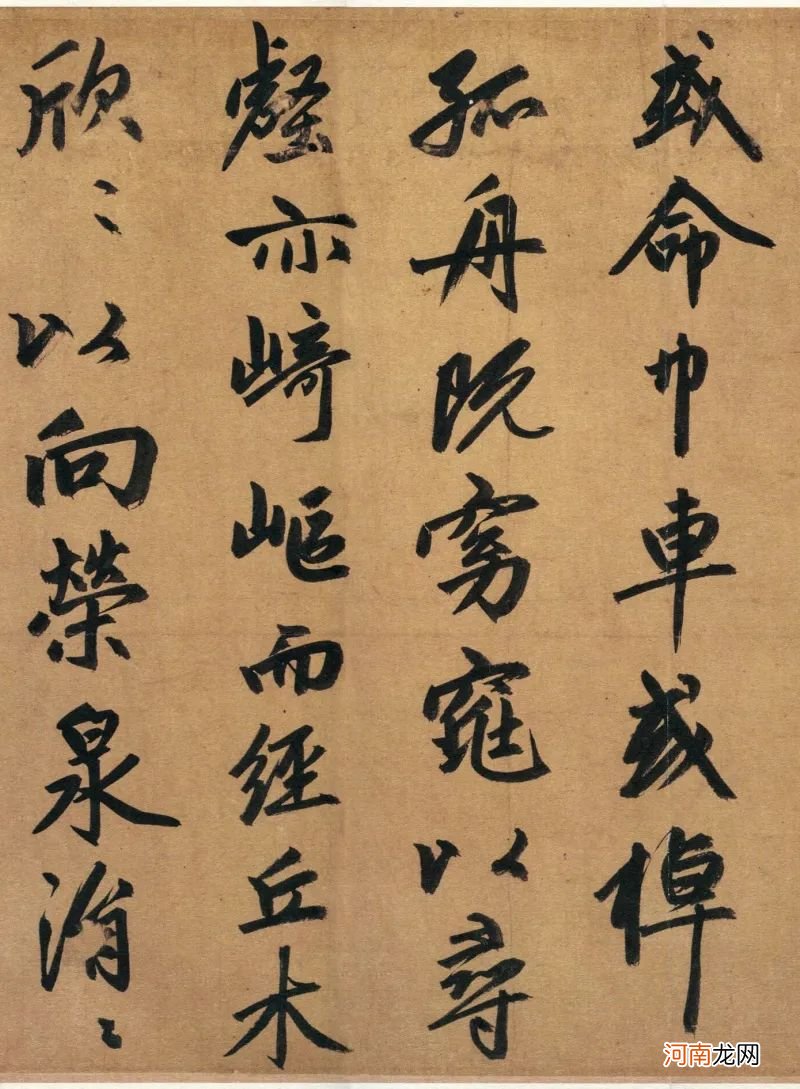 或命巾車或棹
孤舟既窈窕以尋
壑亦崎嶇而經丘木
欣〻以向榮泉涓〻
河南龙网